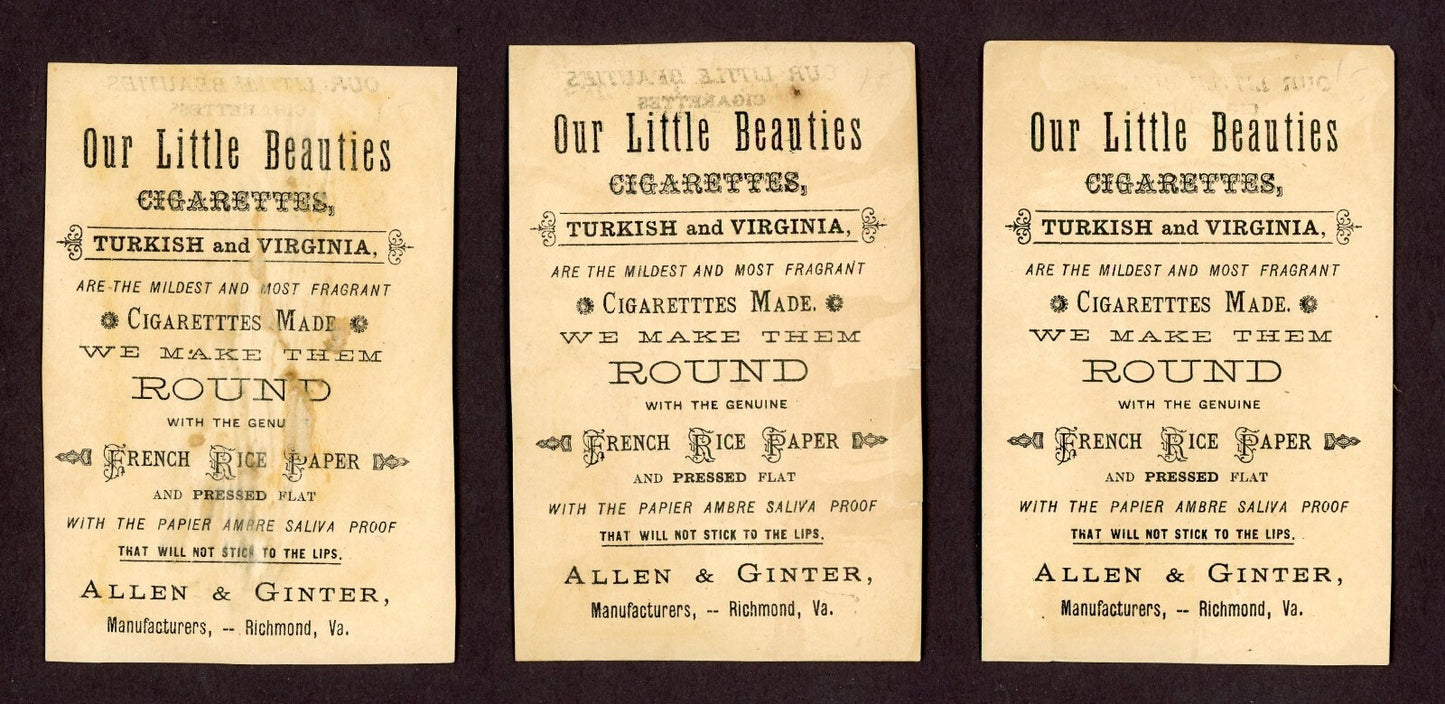 Our Little Beauties
CIGARETTES,
TURKISH and VIRGINIA,
ARE THE MILDEST AND MOST FRAGRANT
CIGARETTTES MADE
WE MAKE THEM
ROUND
WITH THE GENU
FRENCH RICE PAPER
AND PRESSED FLAT
WITH THE PAPIER AMBRE SALIVA PROOF
THAT WILL NOT STICK TO THE LIPS.
ALLEN & GINTER,
Manufacturers, -- Richmond, Va.
OUR LITTLE BEAUTIES
CIGARETTES
Our Little Beauties
CIGARETTES,
TURKISH and VIRGINIA,
ARE THE MILDEST AND MOST FRAGRANT
CIGARETTTES MADE.
WE MAKE THEM
ROUND
WITH THE GENUINE
FRENCH RICE PAPER
AND PRESSED FLAT
WITH THE PAPIER AMBRE SALIVA PROOF
THAT WILL NOT STICK TO THE LIPS.
ALLEN & GINTER,
Manufacturers, -- Richmond, Va.
Our Little Beauties
CIGARETTES,
TURKISH and VIRGINIA,
ARE THE MILDEST AND MOST FRAGRANT
CIGARETTTES MADE.
WE MAKE THEM
ROUND
WITH THE GENUINE
FRENCH RICE PAPER
AND PRESSED FLAT
WITH THE PAPIER AMBRE SALIVA PROOF
THAT WILL NOT STICK TO THE LIPS.
ALLEN & GINTER,
Manufacturers, -- Richmond, Va.